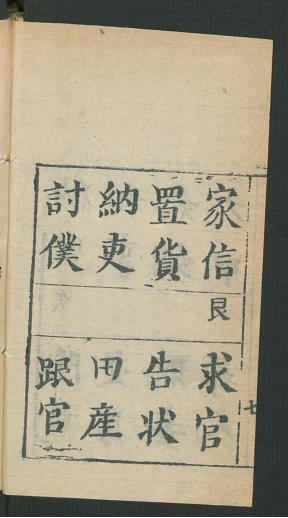 家信
置貨
納吏
討僕
艮
求官
告状
田産
跟官
七